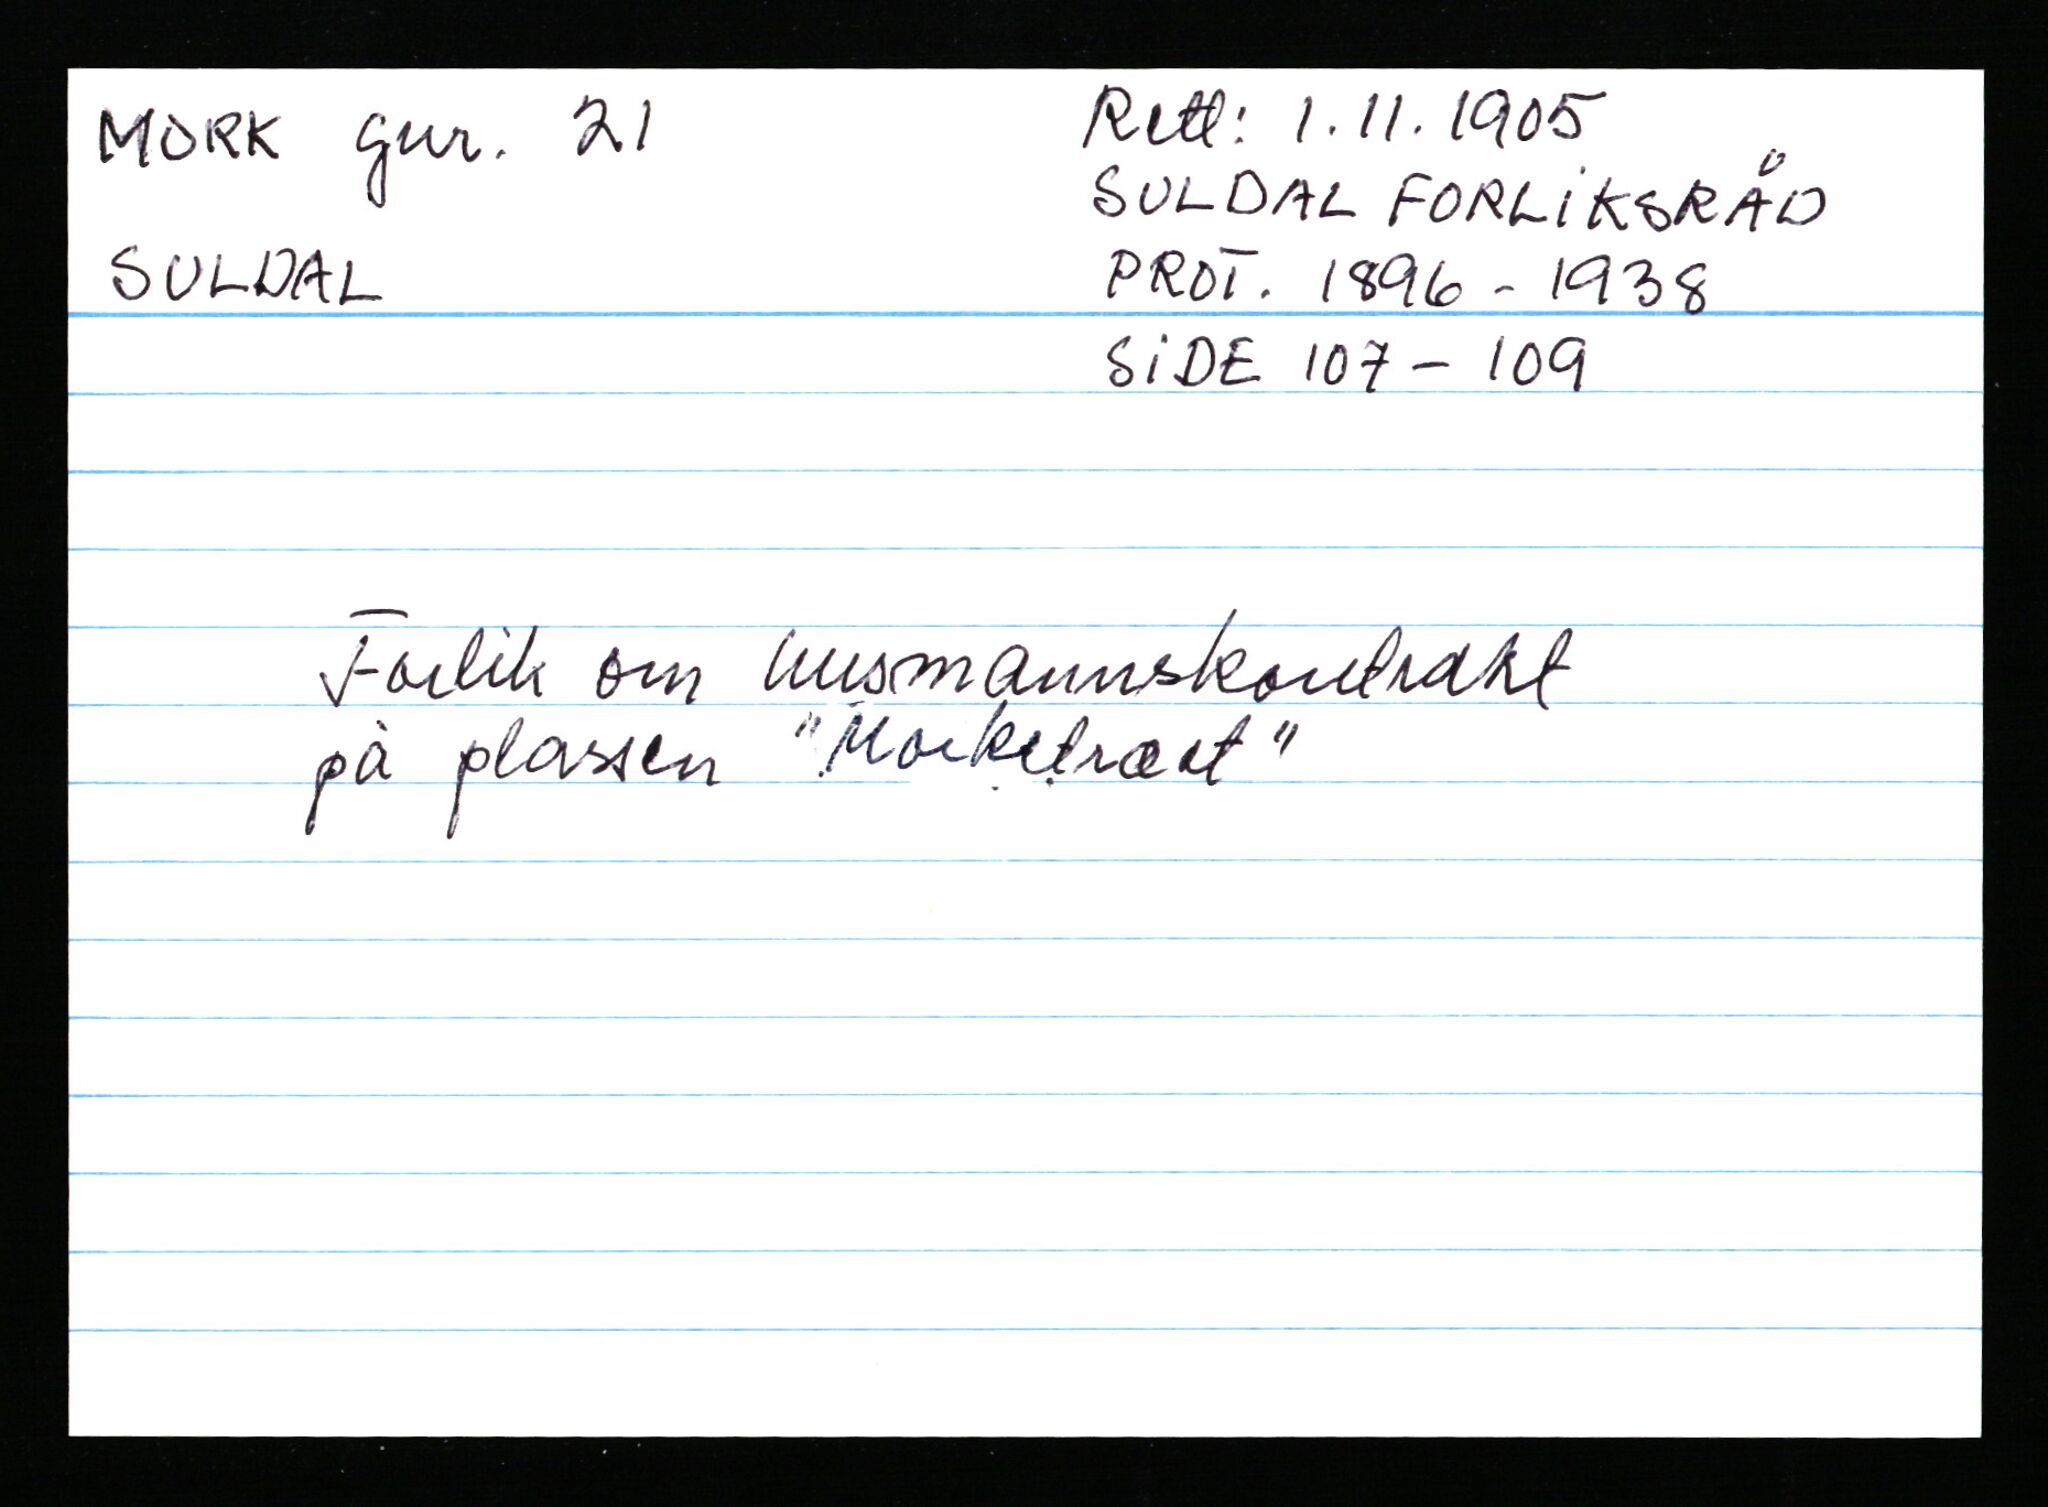 MORK gnr. 21
SULDAL
Rettl: 1.11.1905
SULDAL FORLIKSRÅD
PROT. 1896 - 1938
SIDE 107 - 109
Forlik om husmannskontrakt
på plassen "Morketræet"